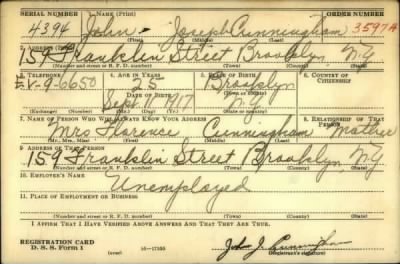 SERIAL NUMBER 1. NAME (Print) ORDER NUMBER
4394 John Joseph Cunningham 3597A
(First) (Middle) (Last)
2. ADDRESS (Print)
159 Franklin Street Brooklyn, N.Y.
(Number and street or R. F. D. number) (Town) (County) (State)
3. TELEPHONE 4. AGE IN YEARS 5. PLACE OF BIRTH 6. COUNTRY OF CITIZENSHIP
EV-9-6650 25 Brooklyn
DATE OF BIRTH (Town or county)
Sept. N.Y.
(Exchange) (Number) (Mo.) (Day) (Yr.) (State or country)
7. NAME OF PERSON WHO WILL ALWAYS KNOW YOUR ADDRESS 8. RELATIONSHIP OF THAT PERSON
Mrs Florence Cunningham Mother
(Mr., Mrs., Miss) (First) (Middle) (Last)
9. ADDRESS OF THAT PERSON
159 Franklin Street Brooklyn, N.Y.
(Number and street or R. F. D. number) (Town) (County) (State)
10. EMPLOYER'S NAME
Unemployed
11. PLACE OF EMPLOYMENT OR BUSINESS
(Number and street or R. F. D. number) (Town) (County) (State)
I AFFIRM THAT I HAVE VERIFIED ABOVE ANSWERS AND THAT THEY ARE TRUE.
REGISTRATION CARD
D. S. S. Form 1 (over) 16—17105 John J. Cunningham
(Registrant's signature)